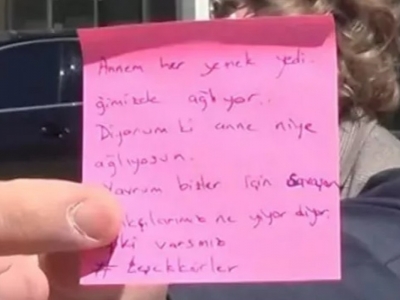 Annem her yemek yedi.
ğimizde ağlıyor..
Diyorum ki anne niye
ağlıyosun.
Yavrum bizler için Savaşan
ne yiyor diyor.
varsınız
# Teşekkürler